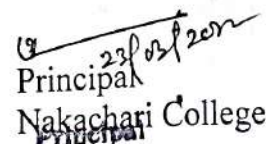 23/03/2022
Principal
Nakachari College
Principal